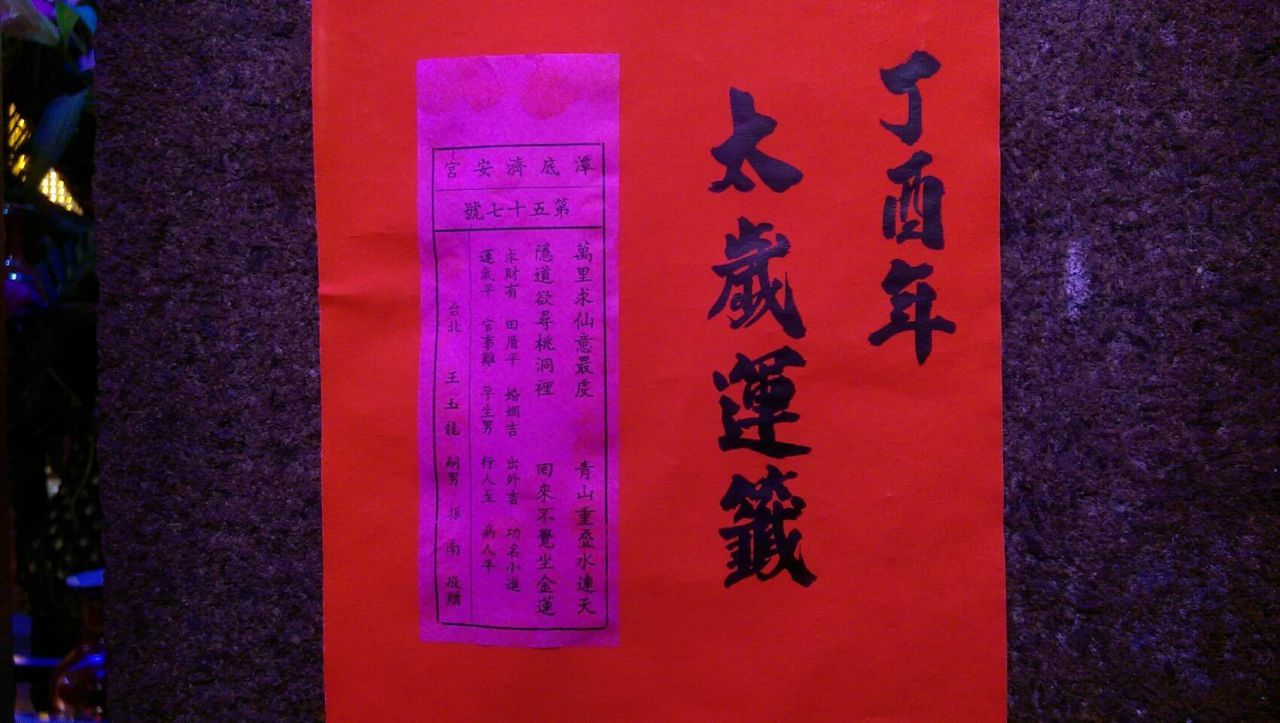 丁酉年
太歲運籤
潭底濟安宮
第五十七號
萬里求仙意最虔 青山重疊水連天
隱道欲尋桃洞裡 回來不覺坐金蓮
求財有 田厝平 婚姻吉 出外吉 功名小進
運氣平 官事難 孕生男 行人至 病人平
台北 王玉龍 嗣男 振南 敬贈